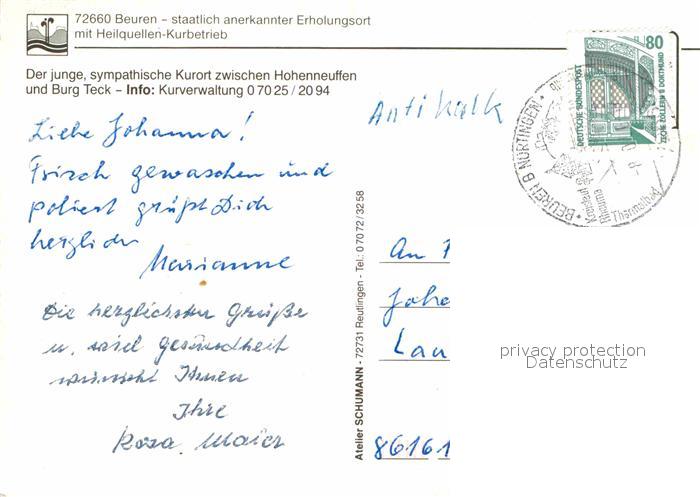 72660 Beuren – staatlich anerkannter Erholungsort
mit Heilquellen-Kurbetrieb
Der junge, sympathische Kurort zwischen Hohenneuffen
und Burg Teck – Info: Kurverwaltung 0 70 25 / 20 94
Antikalk
Liebe Johanna!
Frisch gewaschen und
poliert grüßt Dich
herzlich
Marianne
Die herzlichsten Grüße
u. viel Gesundheit
wünscht Ihnen
Ihre
Rosa Maier
Atelier SCHUMANN - 72731 Reutlingen - Tel.: 0 70 72 / 32 58
An
Joha
Lau
86161
privacy protection
Datenschutz
80
DEUTSCHE BUNDESPOST
ZECHE ZOLLERN II DORTMUND
BEUREN B NÜRTINGEN
Rheuma
Thermalbad